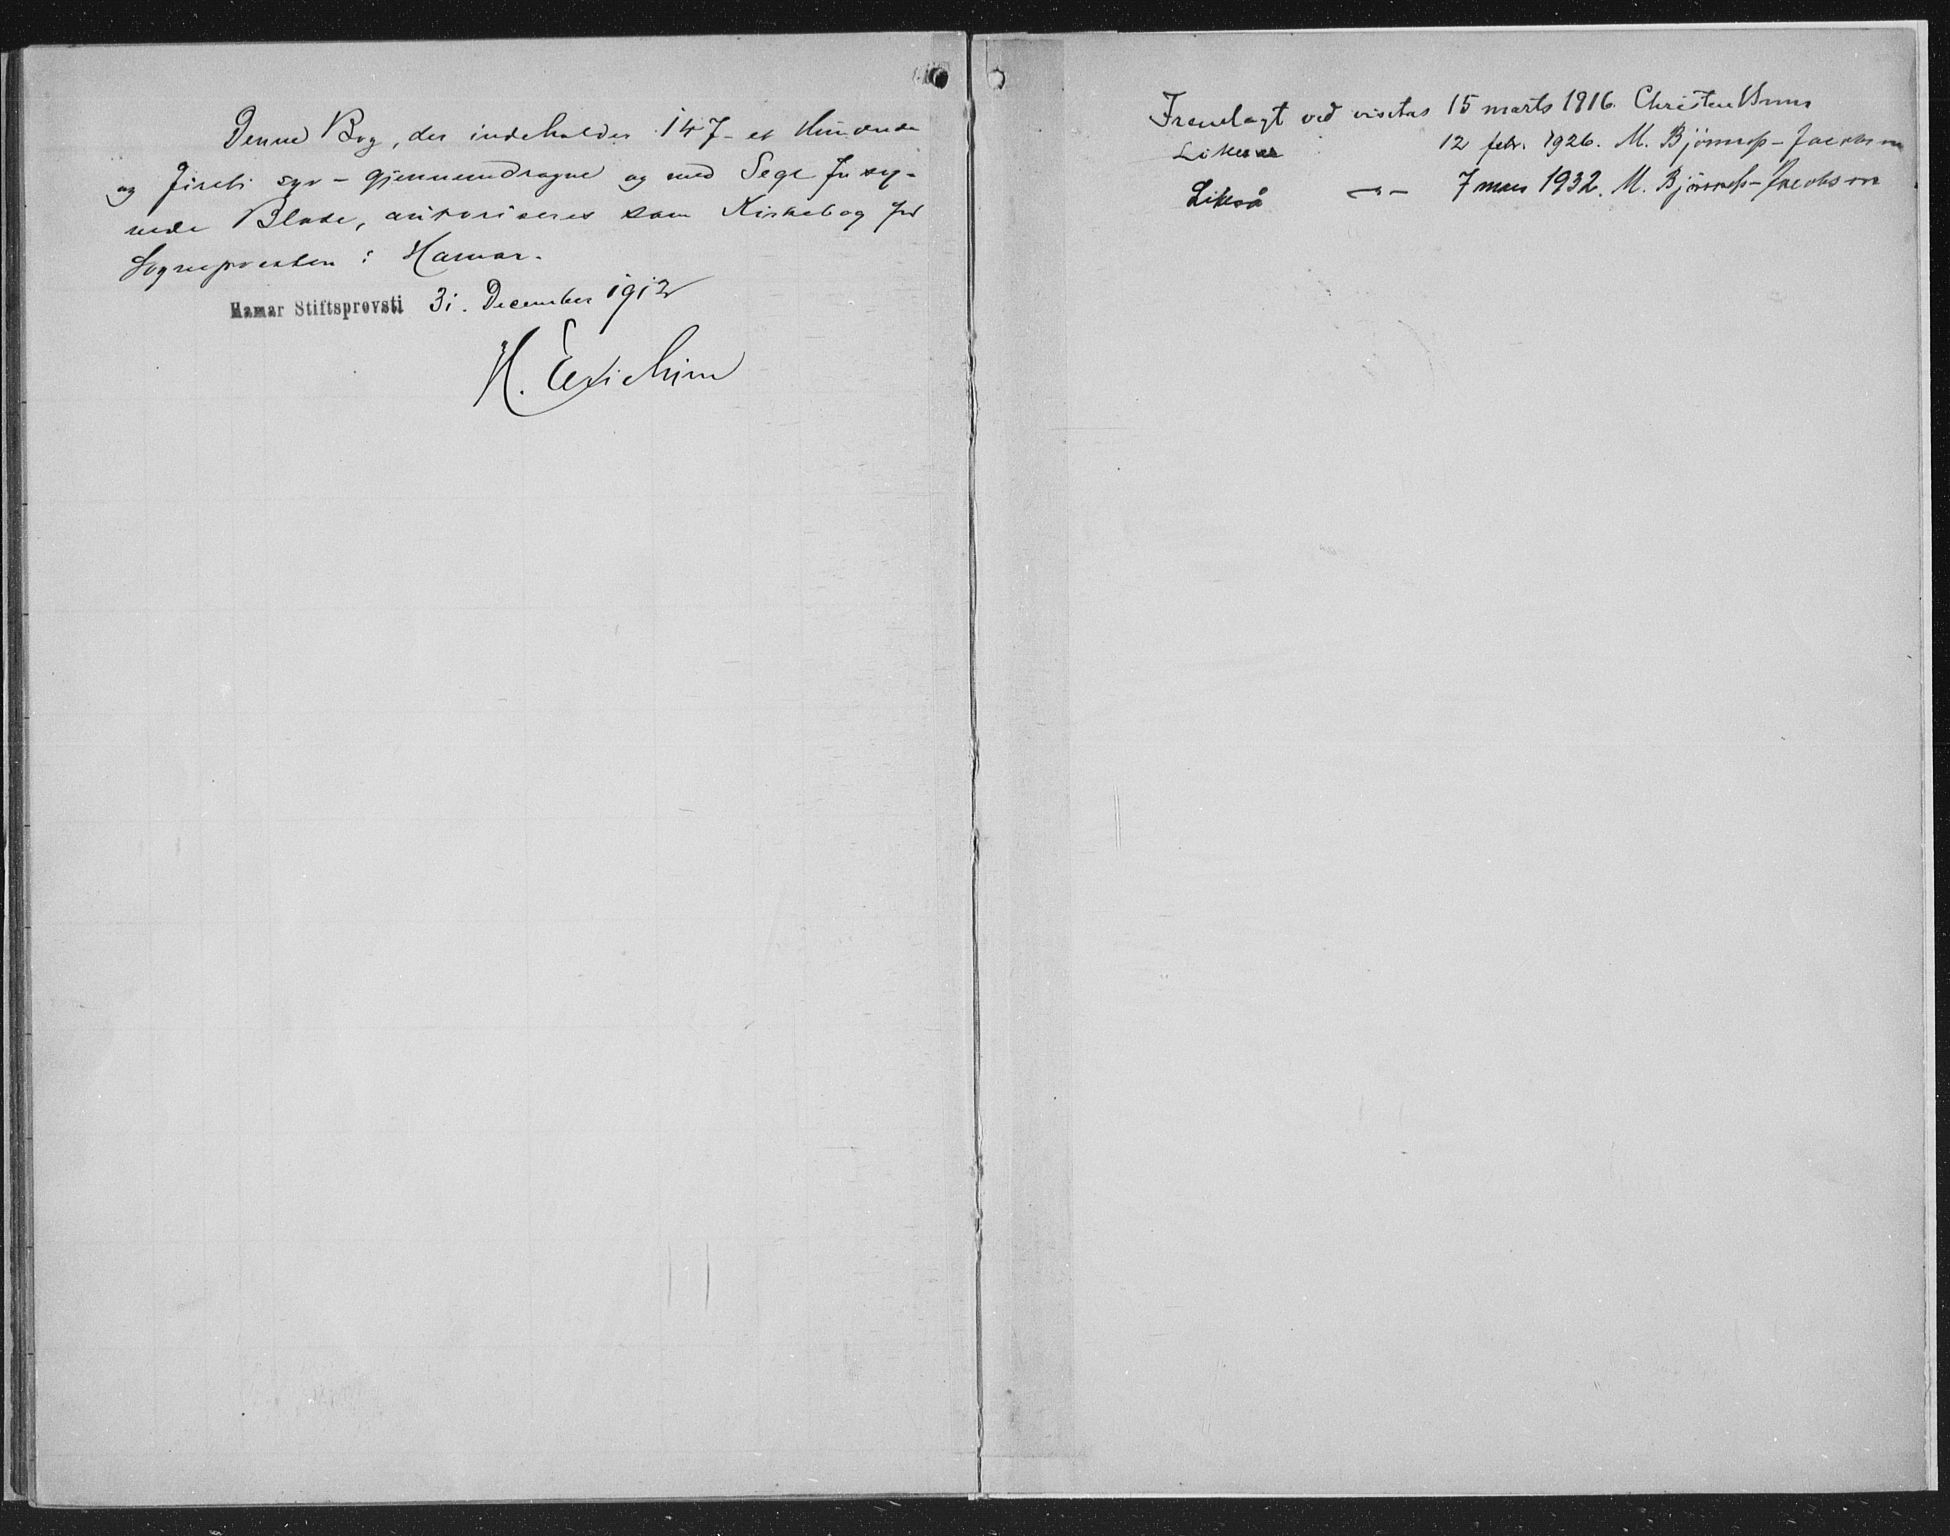 Denne Bog, der indeholder 147 - et Hundrede
og firti syv - gjennemdragne og med Segl forsy-
nede Blade, autoriseres som Kirkebog for
Sognepresten i Hamar.
Hamar Stiftsprovsti 31. December 1912
H.
Fremlagt ved visitas 15 marts 1916. Christen Brun
Likesaa 12 febr. 1926. M. Bjønness-Jacobsen
Likeså —"— 7 mars 1932. M. Bjønness-Jacobsen